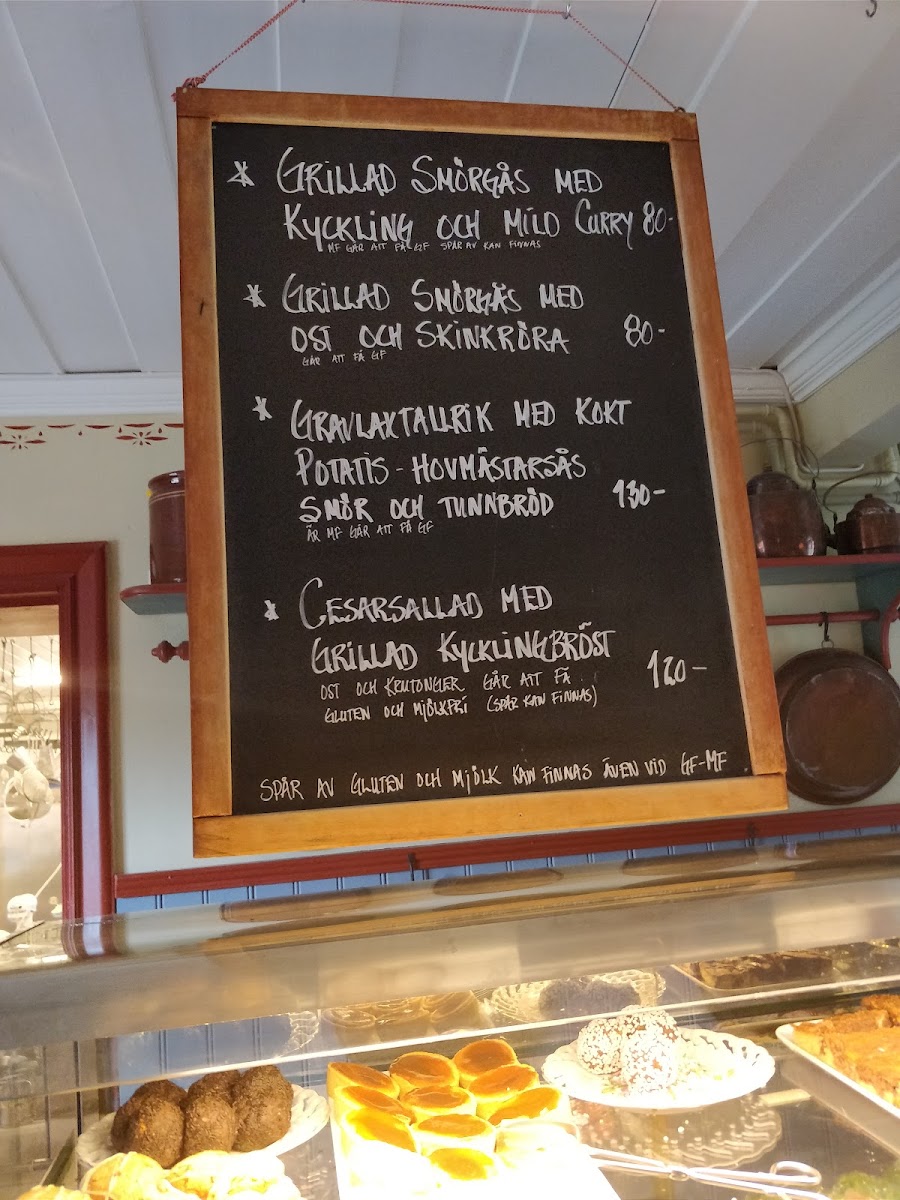 * GRILLAD SMÖRGÅS MED
KYCKLING OCH MILD CURRY 80-
MF GÅR ATT FÅ GF SPÅR AV KAN FINNAS
* GRILLAD SMÖRGÅS MED
OST OCH SKINKRÖRA 80-
GÅR ATT FÅ GF
* GRAVLAXTALLRIK MED KOKT
POTATIS - HOVMÄSTARSÅS
SMÖR OCH TUNNBRÖD 130-
ÄR MF GÅR ATT FÅ GF
* CESARSALLAD MED
GRILLAD KYCKLINGBRÖST
OST OCH KRUTONGER GÅR ATT FÅ 120-
GLUTEN OCH MJÖLKFRI (SPÅR KAN FINNAS)
SPÅR AV GLUTEN OCH MJÖLK KAN FINNAS ÄVEN VID GF-MF